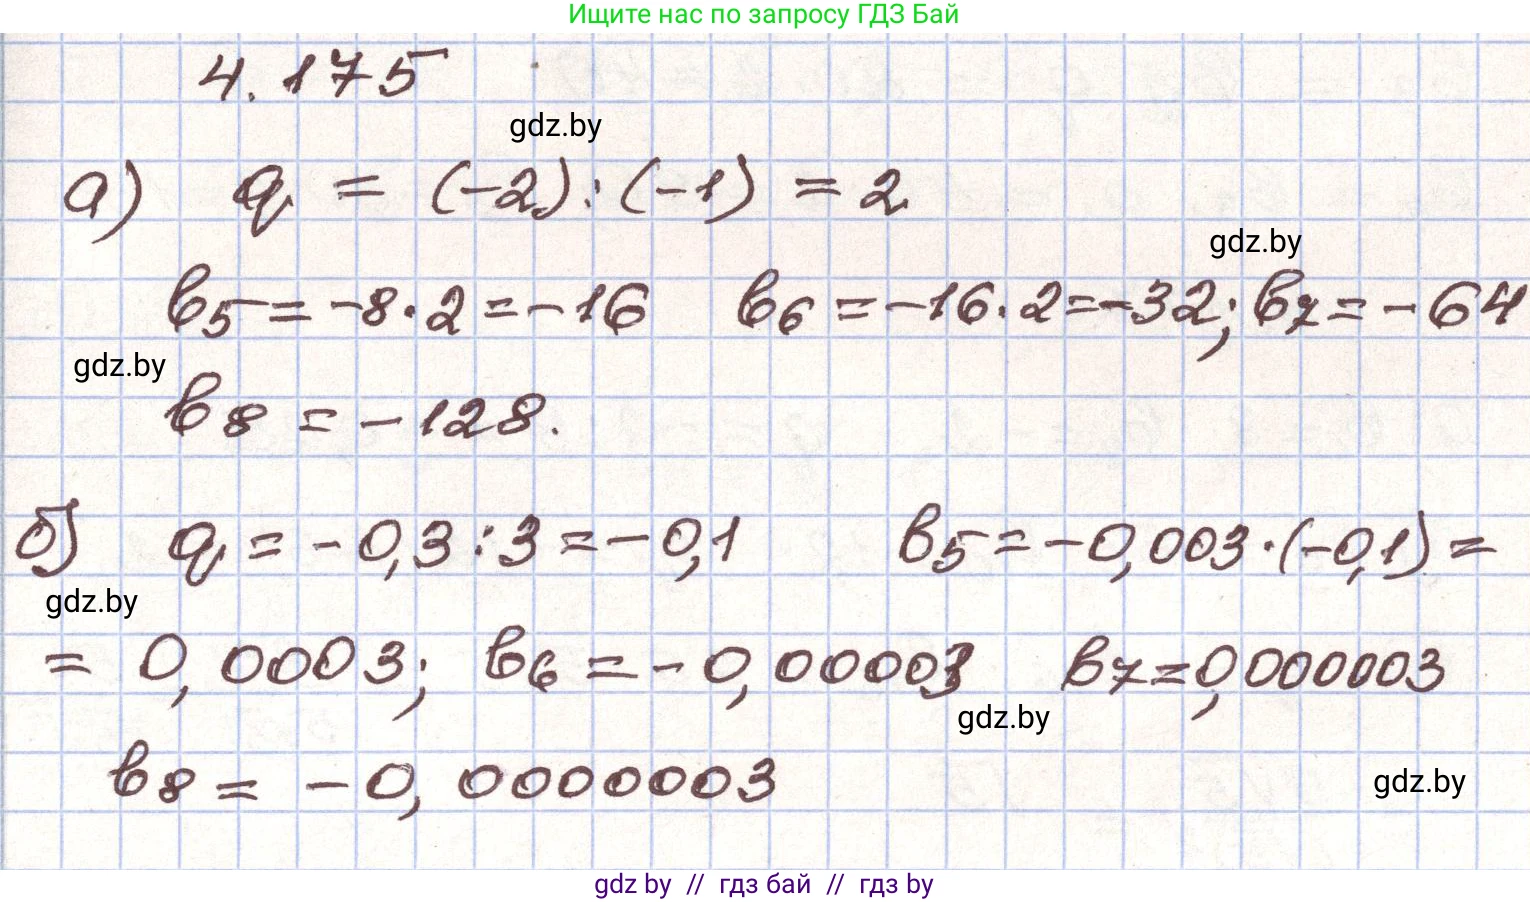 Ищите нас по запросу ГДЗ Бай
4.175
gdz.by
а) q = (-2):(-1) = 2
gdz.by
b5 = -8·2 = -16 b6 = -16·2 = -32; b7 = -64
gdz.by
b8 = -128.
б) q = -0,3:3 = -0,1 b5 = -0,003·(-0,1) =
gdz.by
= 0,0003; b6 = -0,00003 b7 = 0,000003
gdz.by
b8 = -0,0000003
gdz.by
gdz by // гдз бай // гдз by